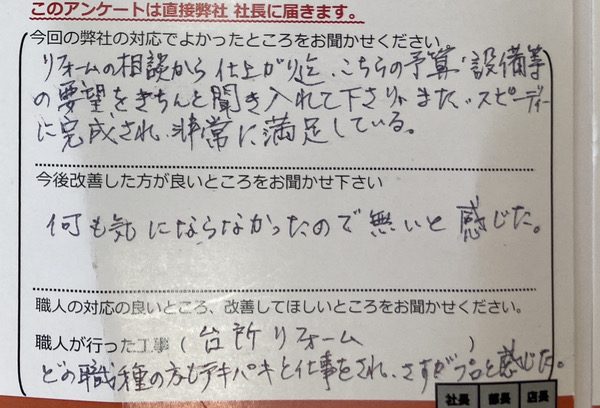 このアンケートは直接弊社 社長に届きます。
今回の弊社の対応でよかったところをお聞かせください
リフォームの相談から仕上がり迄、こちらの予算・設備等
の要望をきちんと聞き入れて下さり、また、スピーディー
に完成され、非常に満足している。
今後改善した方が良いところをお聞かせ下さい
何も気にならなかったので無いと感じた。
職人の対応の良いところ、改善してほしいところをお聞かせください。
職人が行った工事（ 台所リフォーム ）
どの職種の方もテキパキと仕事をされ、さすがプロと感じた。
社長 部長 店長